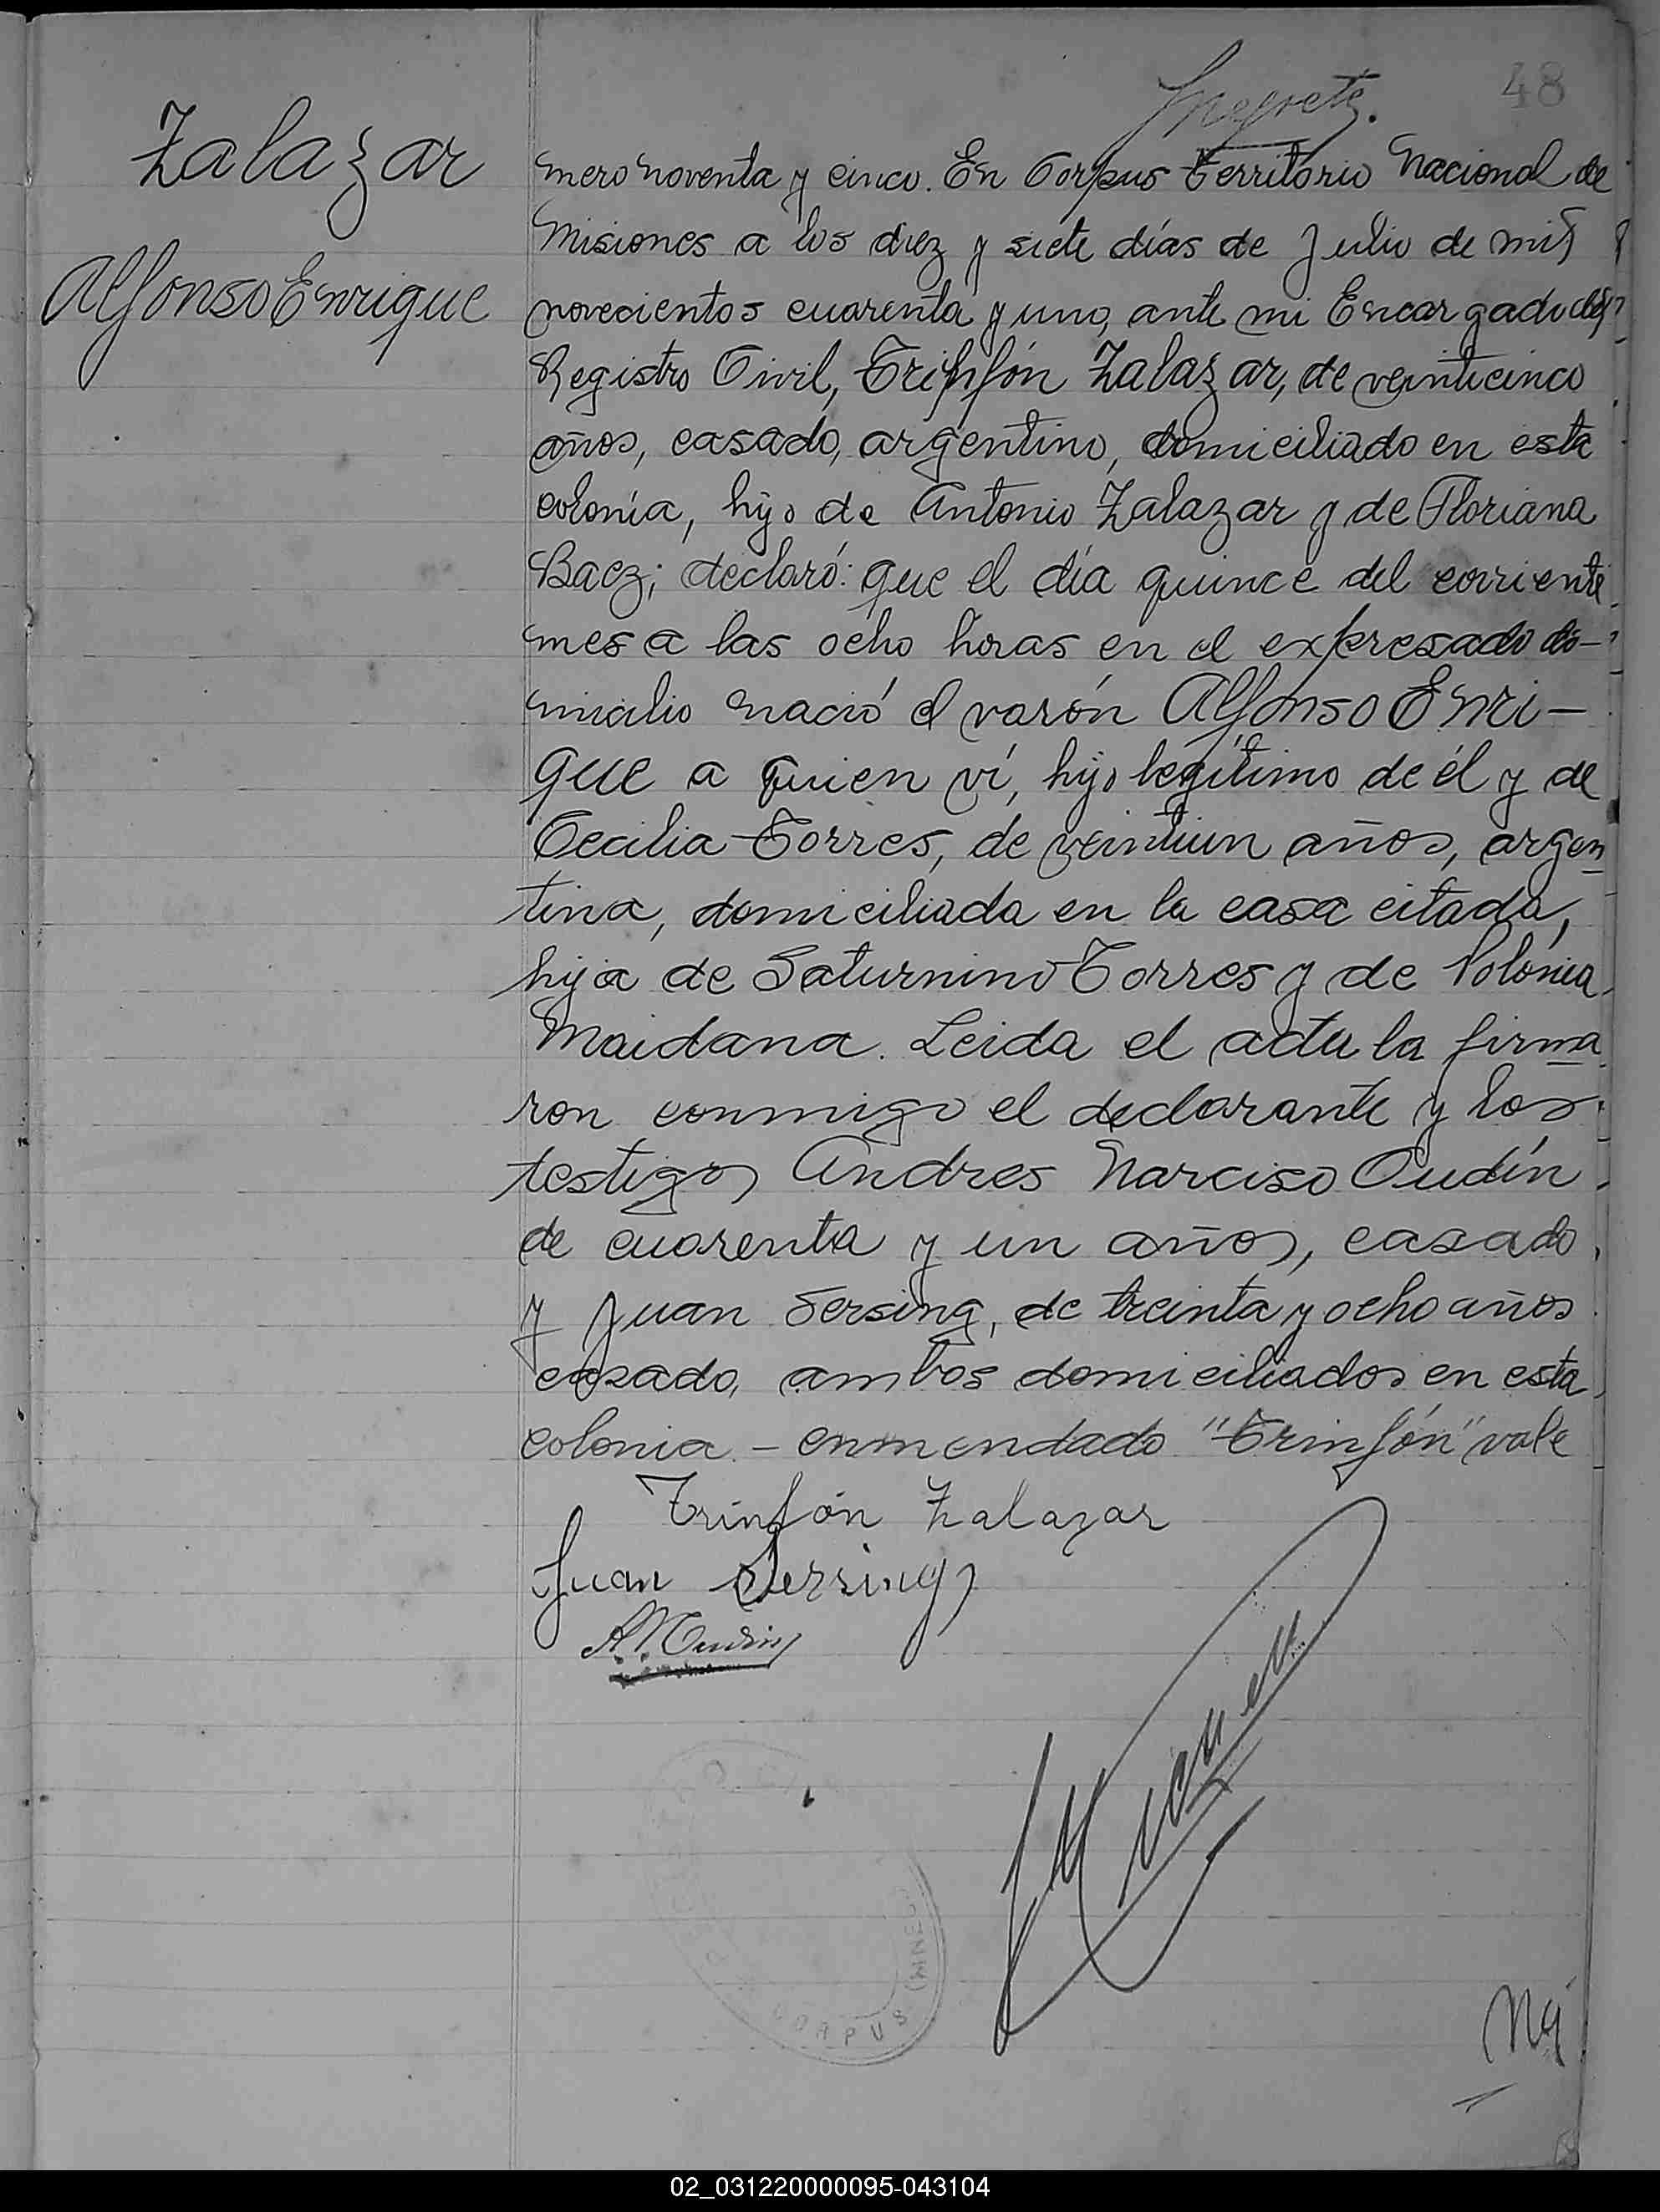 48
Zalazar
Alfonso Enrique
mero noventa y cinco. En Corpus Territorio Nacional de
Misiones a los diez y siete días de Julio de mil
novecientos cuarenta y uno, ante mi Encargado del
Registro Civil, Trinfón Zalazar, de veinticinco
años, casado, argentino, domiciliado en esta
colonia, hijo de Antonio Zalazar y de Floriana
Baez; declaró: que el día quince del corriente
mes a las ocho horas en el expresado do-
micilio nació el varón Alfonso Enri-
que a quien ví, hijo legítimo de él y de
Cecilia Torres, de veintiun años, argen
tina, domiciliada en la casa citada,
hija de Saturnino Torres y de Polonia
Maidana. Leida el acta la firma
ron conmigo el declarante y los
testigos Andres Narciso Oudín
de cuarenta y un años, casado
y Juan Sersing, de treinta y ocho años
casado, ambos domiciliados en esta
colonia - enmendado "Trinfón" vale
Trinfón Zalazar
Juan Sersing
A. N. Oudin
CORPUS
Nú
02_031220000095-043104